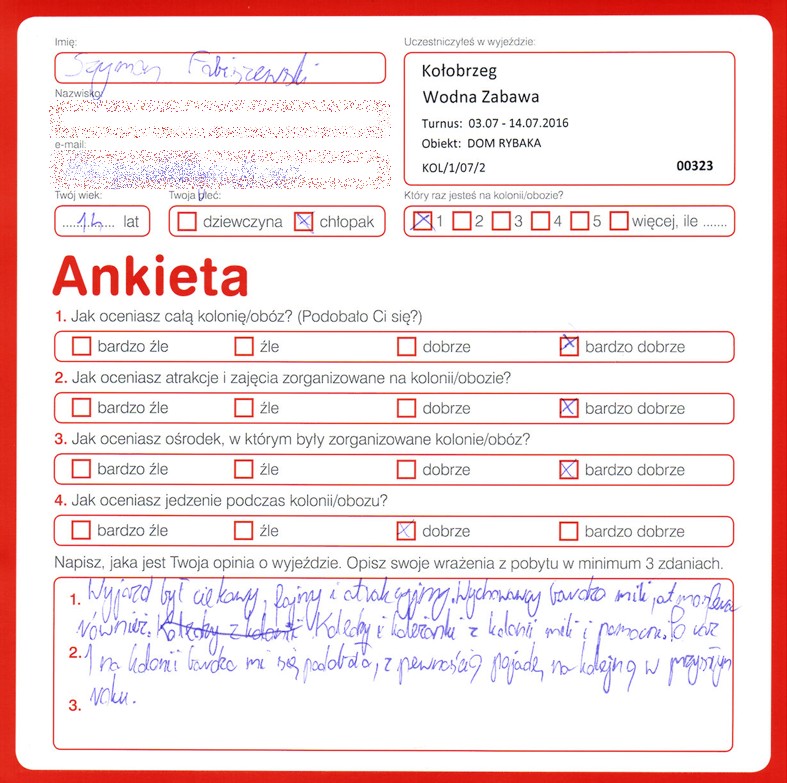 Imię:
Szymon Fabiszewski
Nazwisko:
e-mail:
Twój wiek:
lat
Twoja płeć:
dziewczyna chłopak
Uczestniczyłeś w wyjeździe:
Kołobrzeg
Wodna Zabawa
Turnus: 03.07 - 14.07.2016
Obiekt: DOM RYBAKA
KOL/1/07/2 00323
Który raz jesteś na kolonii/obozie?
1 2 3 4 5 więcej, ile .......
Ankieta
1. Jak oceniasz całą kolonię/obóz? (Podobało Ci się?)
bardzo źle źle dobrze bardzo dobrze
2. Jak oceniasz atrakcje i zajęcia zorganizowane na kolonii/obozie?
bardzo źle źle dobrze bardzo dobrze
3. Jak oceniasz ośrodek, w którym były zorganizowane kolonie/obóz?
bardzo źle źle dobrze bardzo dobrze
4. Jak oceniasz jedzenie podczas kolonii/obozu?
bardzo źle źle dobrze bardzo dobrze
Napisz, jaka jest Twoja opinia o wyjeździe. Opisz swoje wrażenia z pobytu w minimum 3 zdaniach.
1. Wyjazd był ciekawy, fajny i atrakcyjny. Wychowawcy bardzo mili, atmosfera
również. Koledzy z kolonii Koledzy i koleżanki z kolonii mili i pomocni. Po raz
2. 1 na kolonii bardzo mi się podobało, z pewnością pojadę na kolejną w przyszłym
roku.
3.